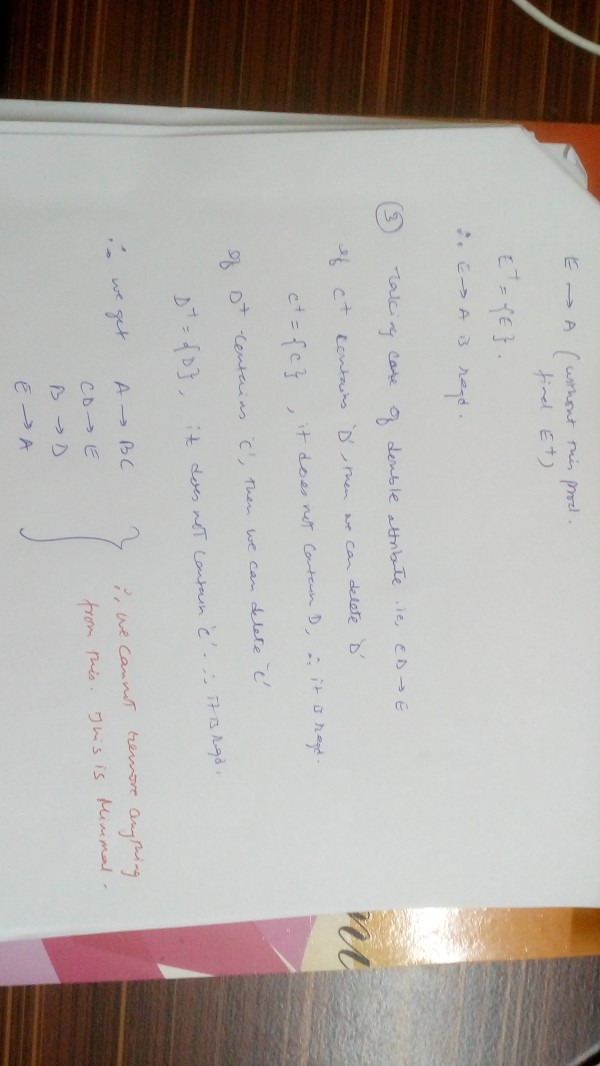 E → A (without this prod.
find E⁺)
E⁺ = {E}.
∴ E → A is reqd.
③ Taking care of double attribute i.e., CD → E
If C⁺ contains 'D', then we can delete 'D'
C⁺ = {C}, it does not contain D, ∴ it is reqd.
If D⁺ contains 'C', then we can delete 'C'
D⁺ = {D}, it does not contain 'C' ∴ it is reqd.
∴ we get A → BC
CD → E
B → D
E → A
∴ we cannot remove anything
from this. This is Minimal.